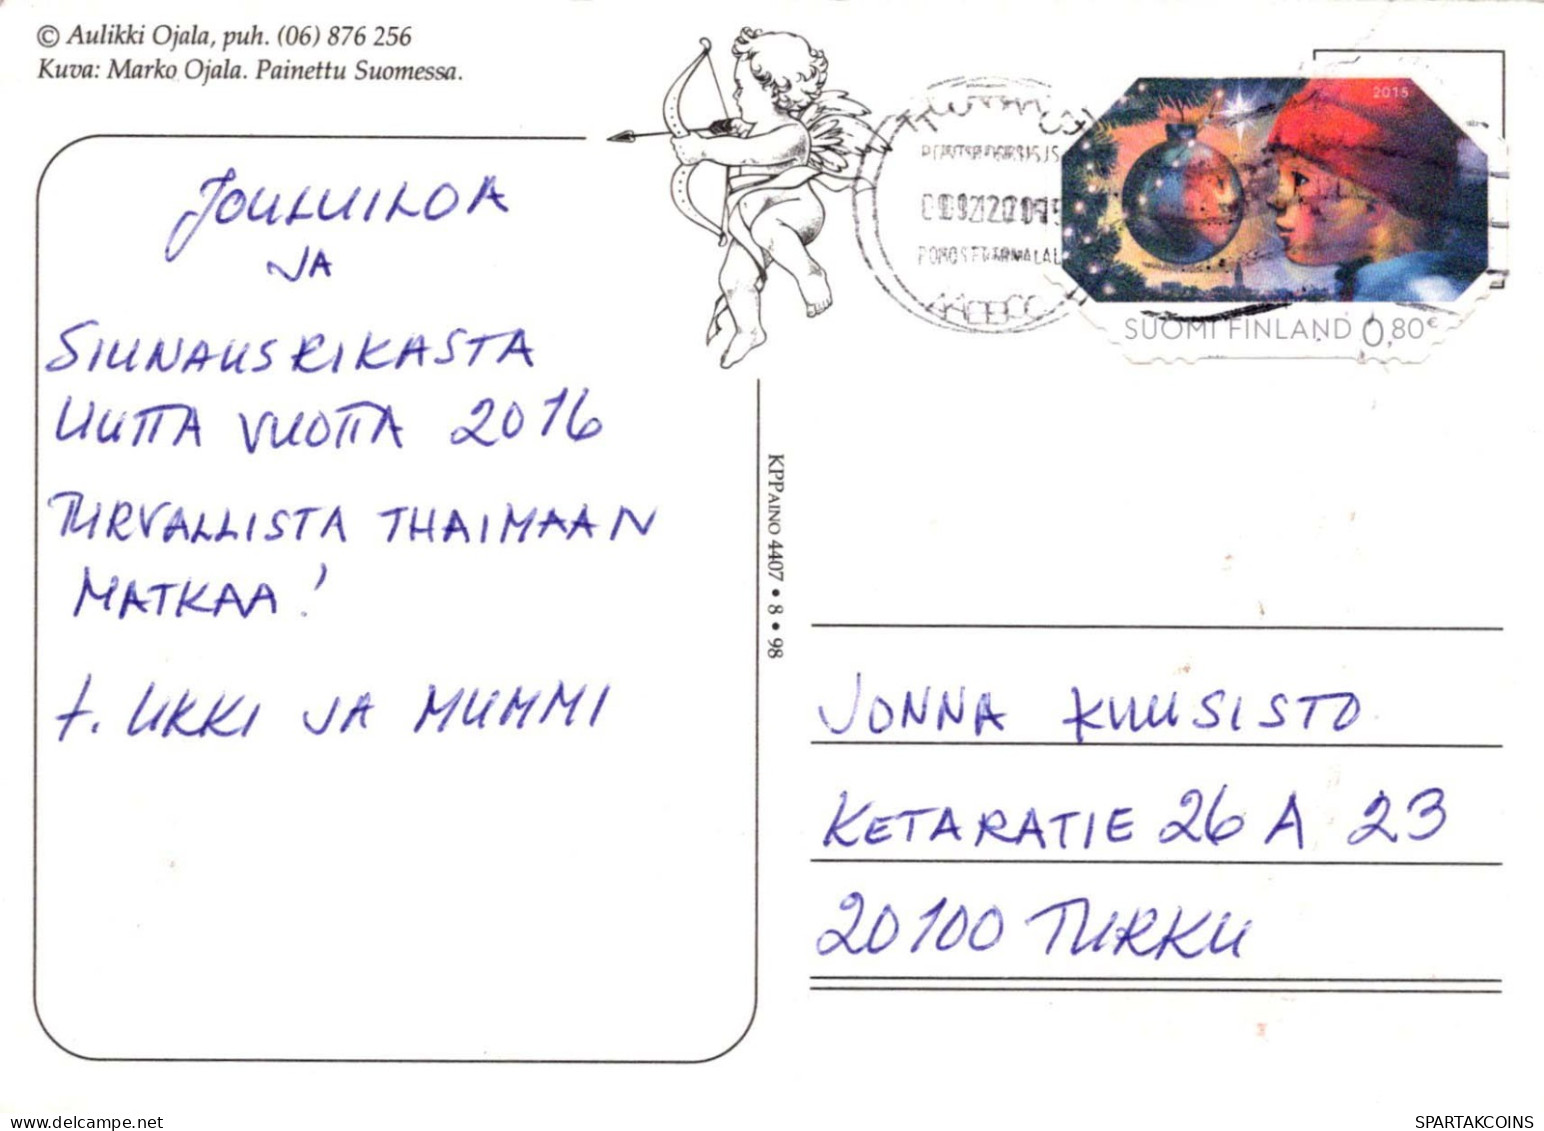 © Aulikki Ojala, puh. (06) 876 256
Kuva: Marko Ojala. Painettu Suomessa.
JOULUILOA
JA
SIUNAUSRIKASTA
UUTTA VUOTTA 2016
TURVALLISTA THAIMAAN
MATKAA!
T. UKKI JA MUMMI
KPP AINO 4407 • 8 • 98
2015
SUOMI FINLAND 0,80€
JONNA KUUSISTO
KETARATIE 26 A 23
20100 TURKU
SPARTAKCOINS
delcampe.net